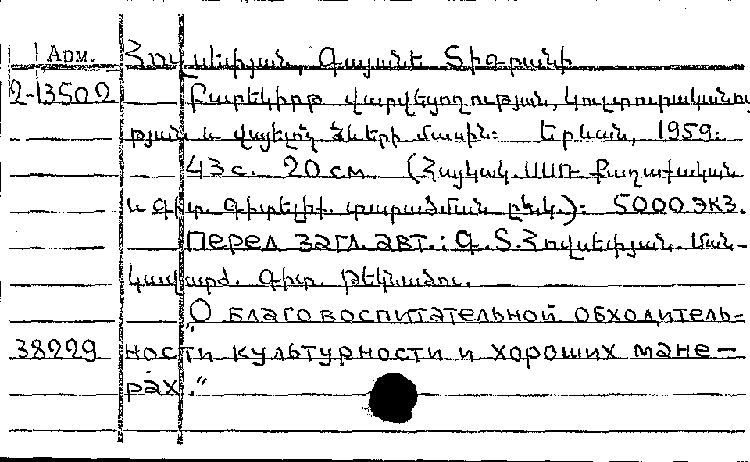 Арм. Հովսեփյան, Գայանե Տիգրանի
2-13502 Բարեկիրթ վարվեցողության, կուլտուրականու
թյան և վայելուչ ձևերի մասին: Երևան, 1959:
43 с. 20 см (Հայկակ. ՍՍՌ Քաղաքական
և գիտ. գիտելիք. տարածման ընկ.): 5000 экз.
Перед загл. авт.: Գ. Տ. Հովսեփյան. Ման-
կավարժ. գիտ. թեկնածու.
"О благовоспитательной обходитель-
38229 ности культурности и хороших мане-
рах."